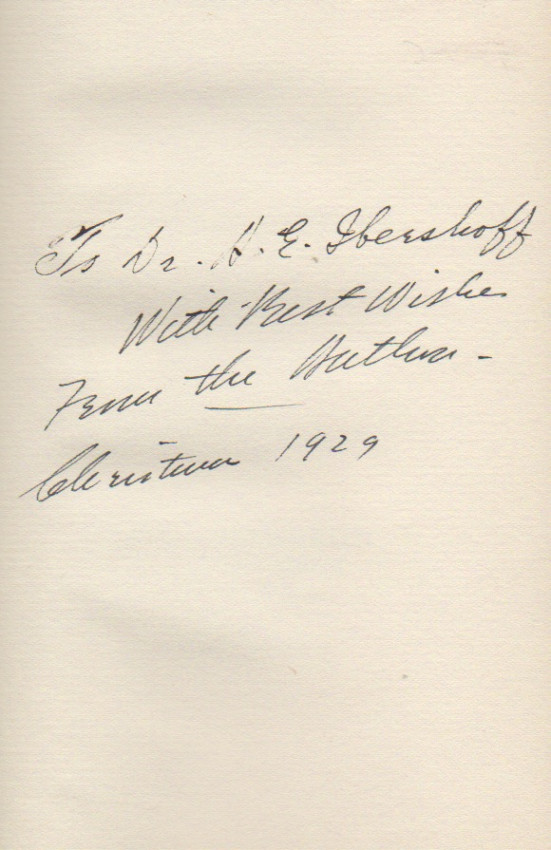 To Dr. A. E. Ibershoff
With Best Wishes
From the Author -
Christmas 1929